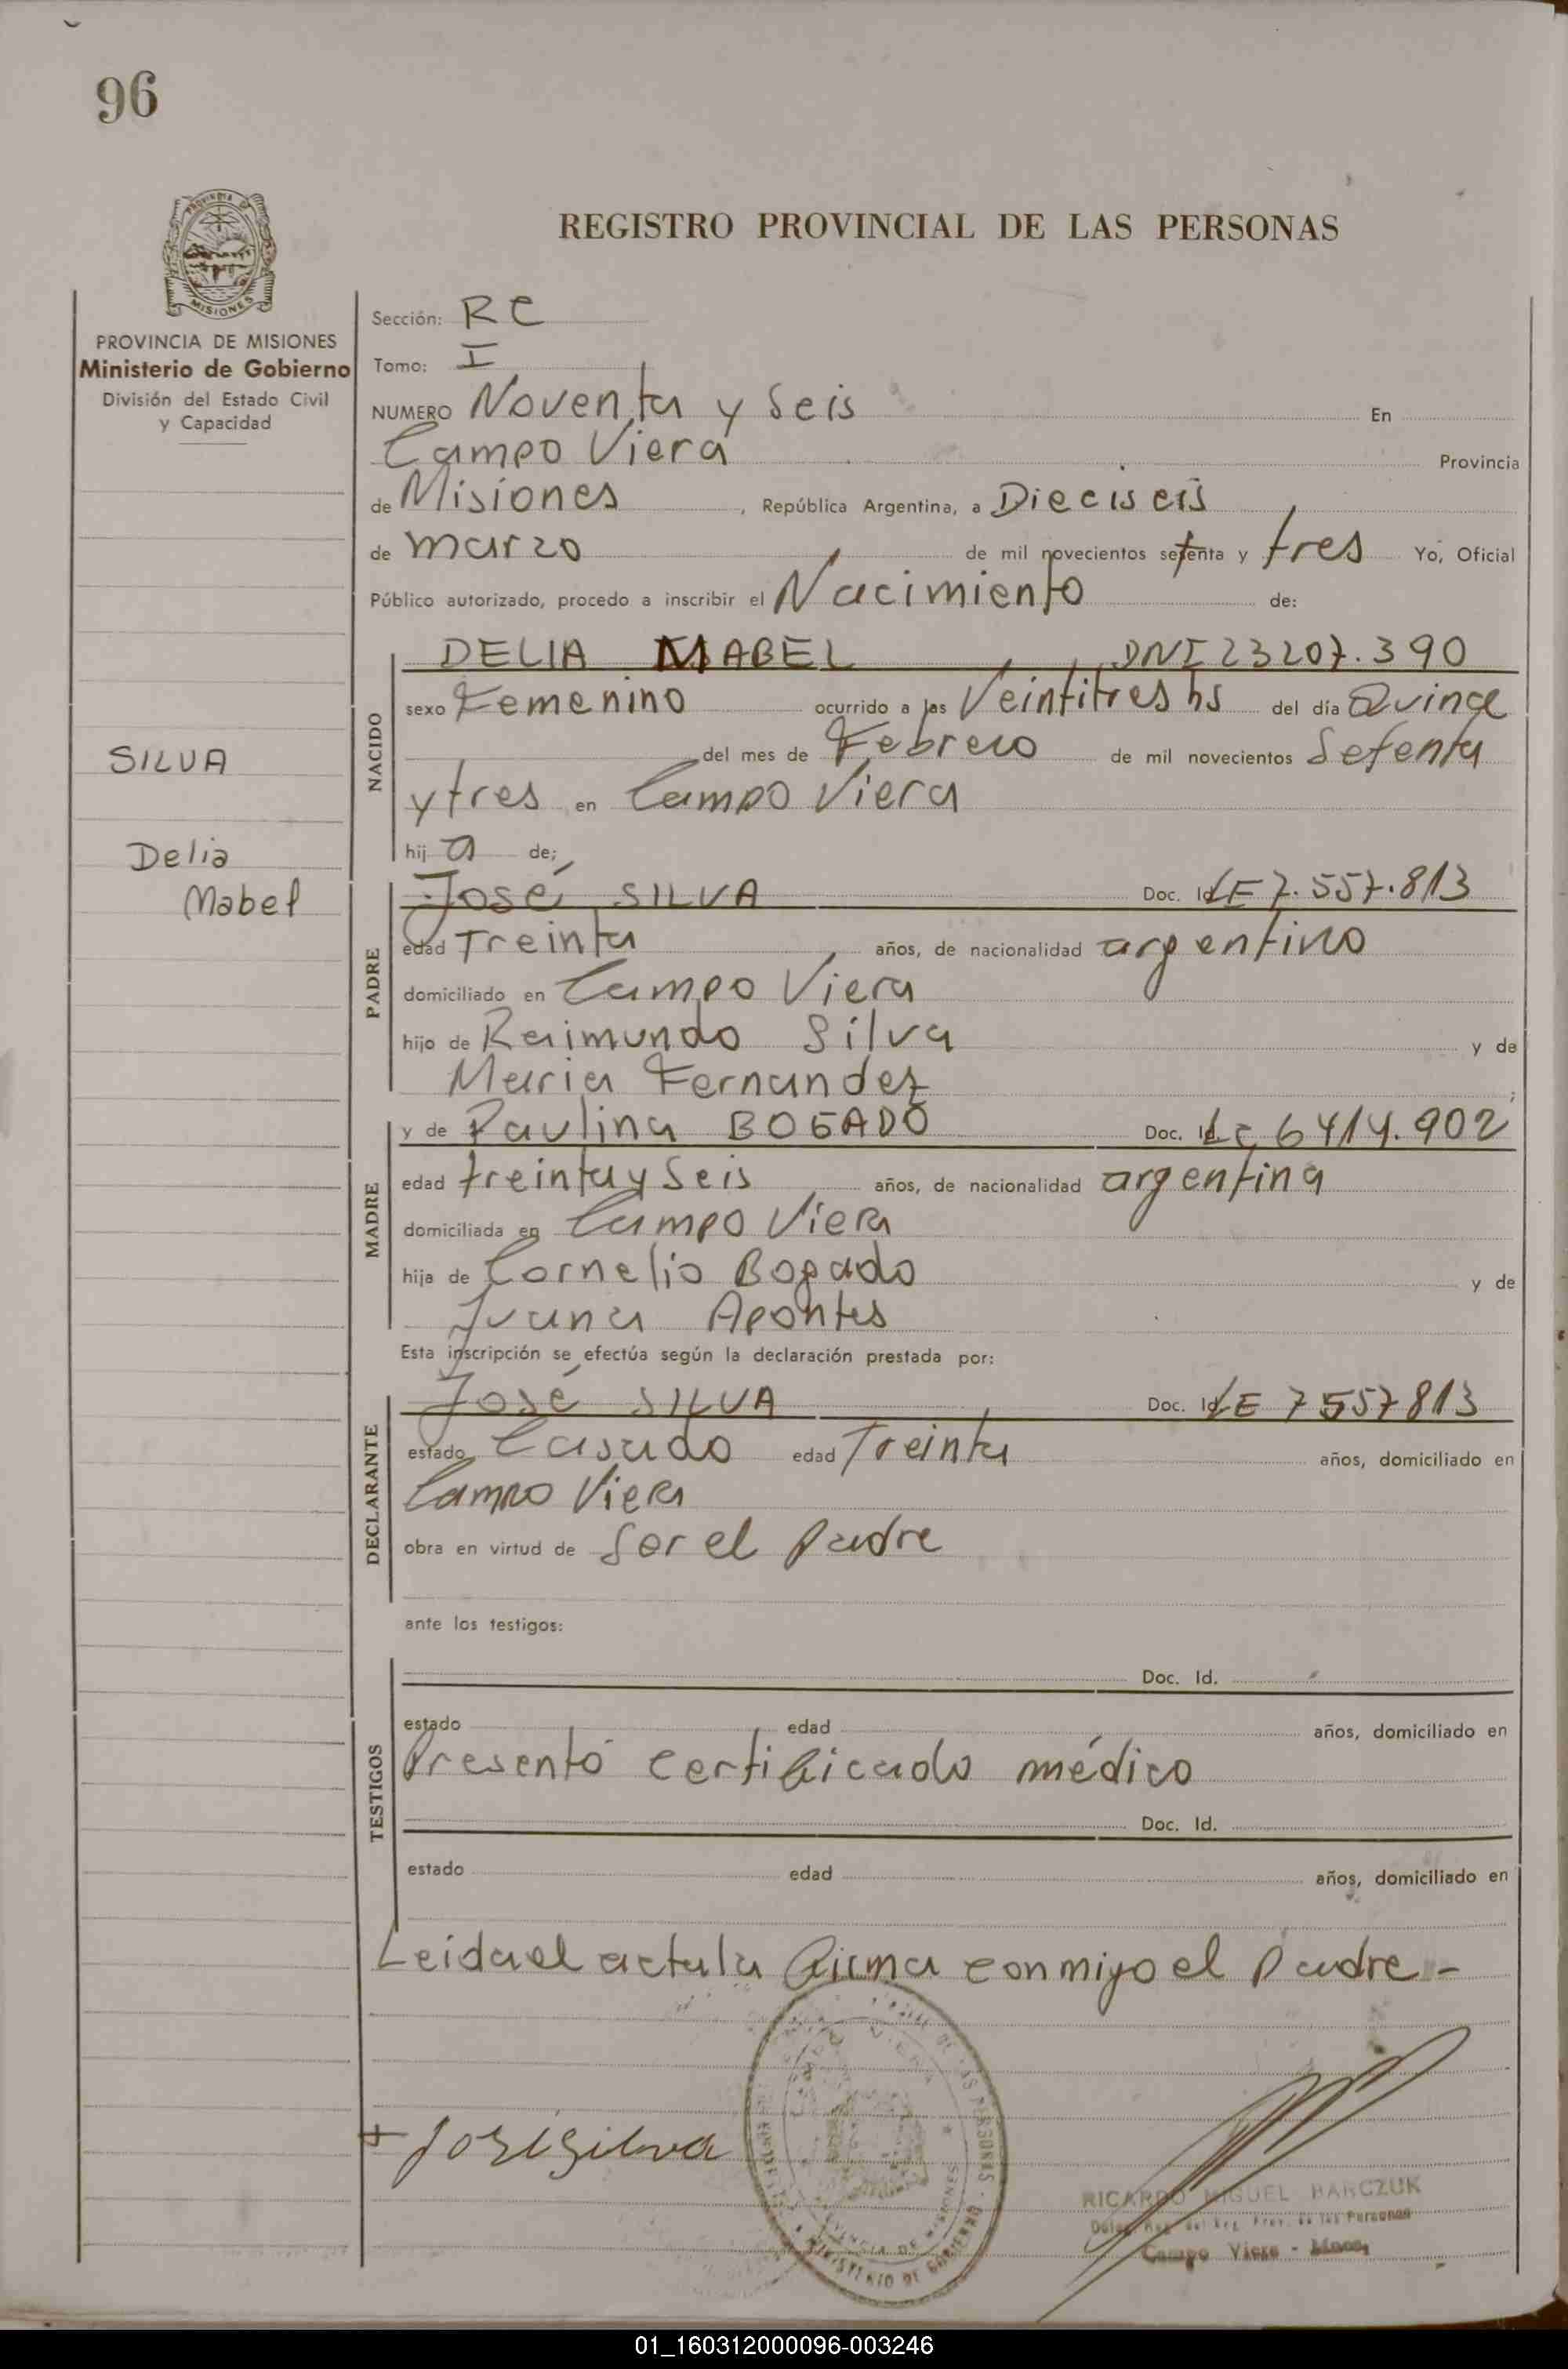 96
REGISTRO PROVINCIAL DE LAS PERSONAS
MISIONES
PROVINCIA DE MISIONES
Ministerio de Gobierno
División del Estado Civil
y Capacidad
SILVA
Delia
Mabel
Sección: RC
Tomo: I
NUMERO Noventa y Seis En
Campo Viera Provincia
de Misiones, República Argentina, a Dieciseis
de marzo de mil novecientos setenta y tres Yo, Oficial
Público autorizado, procedo a inscribir el Nacimiento de:
NACIDO
DELIA MABEL DNI 23207.390
sexo Femenino ocurrido a las Veintitres hs del día Quince
del mes de Febrero de mil novecientos Setenta
y tres en Campo Viera
hij a de;
PADRE
José SILVA Doc. Id. LE 7.557.813
edad Treinta años, de nacionalidad argentino
domiciliado en Campo Viera
hijo de Raimundo Silva y de
Maria Fernandez ;
MADRE
y de Paulina BOGADO Doc. Id. LC 6414.902
edad treinta y Seis años, de nacionalidad argentina
domiciliada en Campo Viera
hija de Cornelio Bogado y de
Juana Apontes
Esta inscripción se efectúa según la declaración prestada por:
DECLARANTE
José SILVA Doc. Id. LE 7557813
estado Casado edad Treinta años, domiciliado en
Campo Viera
obra en virtud de Ser el padre
ante los testigos:
TESTIGOS
Doc. Id.
estado edad años, domiciliado en
Presentó certificado médico
Doc. Id.
estado edad años, domiciliado en
Leida el acta la firma conmigo el padre -
José Silva
CAMPO VIERA
PROVINCIA DE MISIONES
MINISTERIO DE GOBIERNO
RICARDO MIGUEL BARCZUK
Prov. de las Personas
Campo Viera - Mnes.
01_160312000096-003246